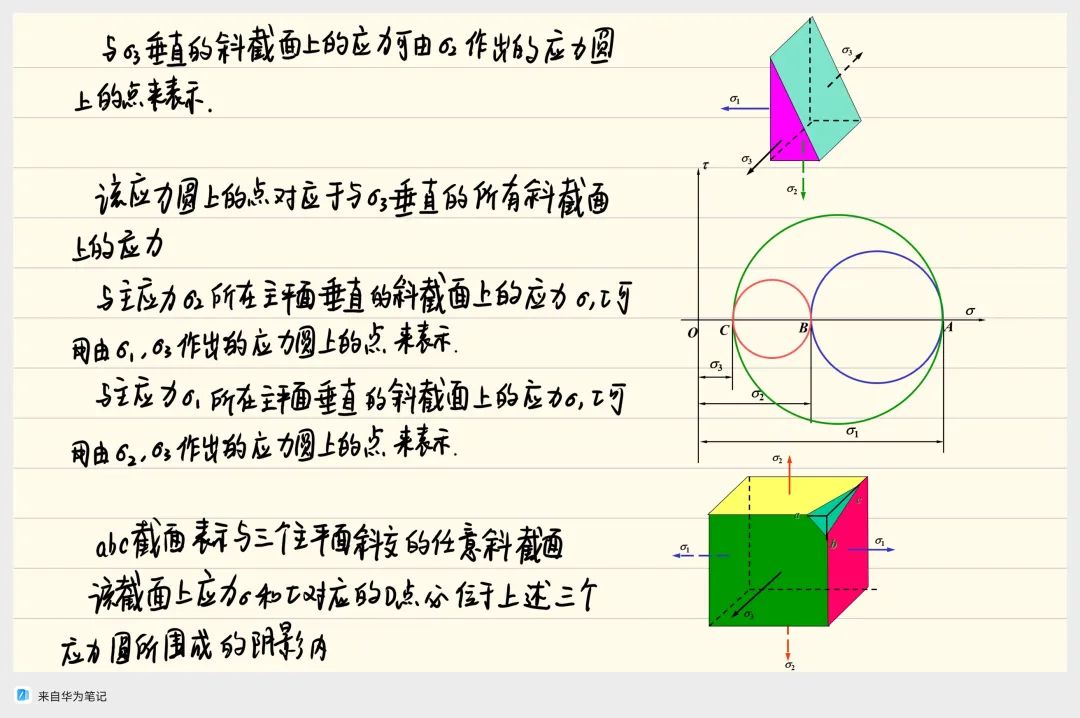 与σ₃垂直的斜截面上的应力可由σ₂作出的应力圆
上的点来表示.
该应力圆上的点对应于与σ₃垂直的所有斜截面
上的应力
与主应力σ₂所在主平面垂直的斜截面上的应力σ,τ可
用由σ₁,σ₃作出的应力圆上的点来表示.
与主应力σ₁所在主平面垂直的斜截面上的应力σ,τ可
用由σ₂,σ₃作出的应力圆上的点来表示.
abc截面表示与三个主平面斜交的任意斜截面
该截面上应力σ和τ对应的D点必位于上述三个
应力圆所围成的阴影内
σ₃
σ₁
σ₃
σ₂
τ
σ
O C B A
σ₃
σ₂
σ₁
σ₂
a c
b
σ₁ σ₁
σ₃
σ₂
来自华为笔记